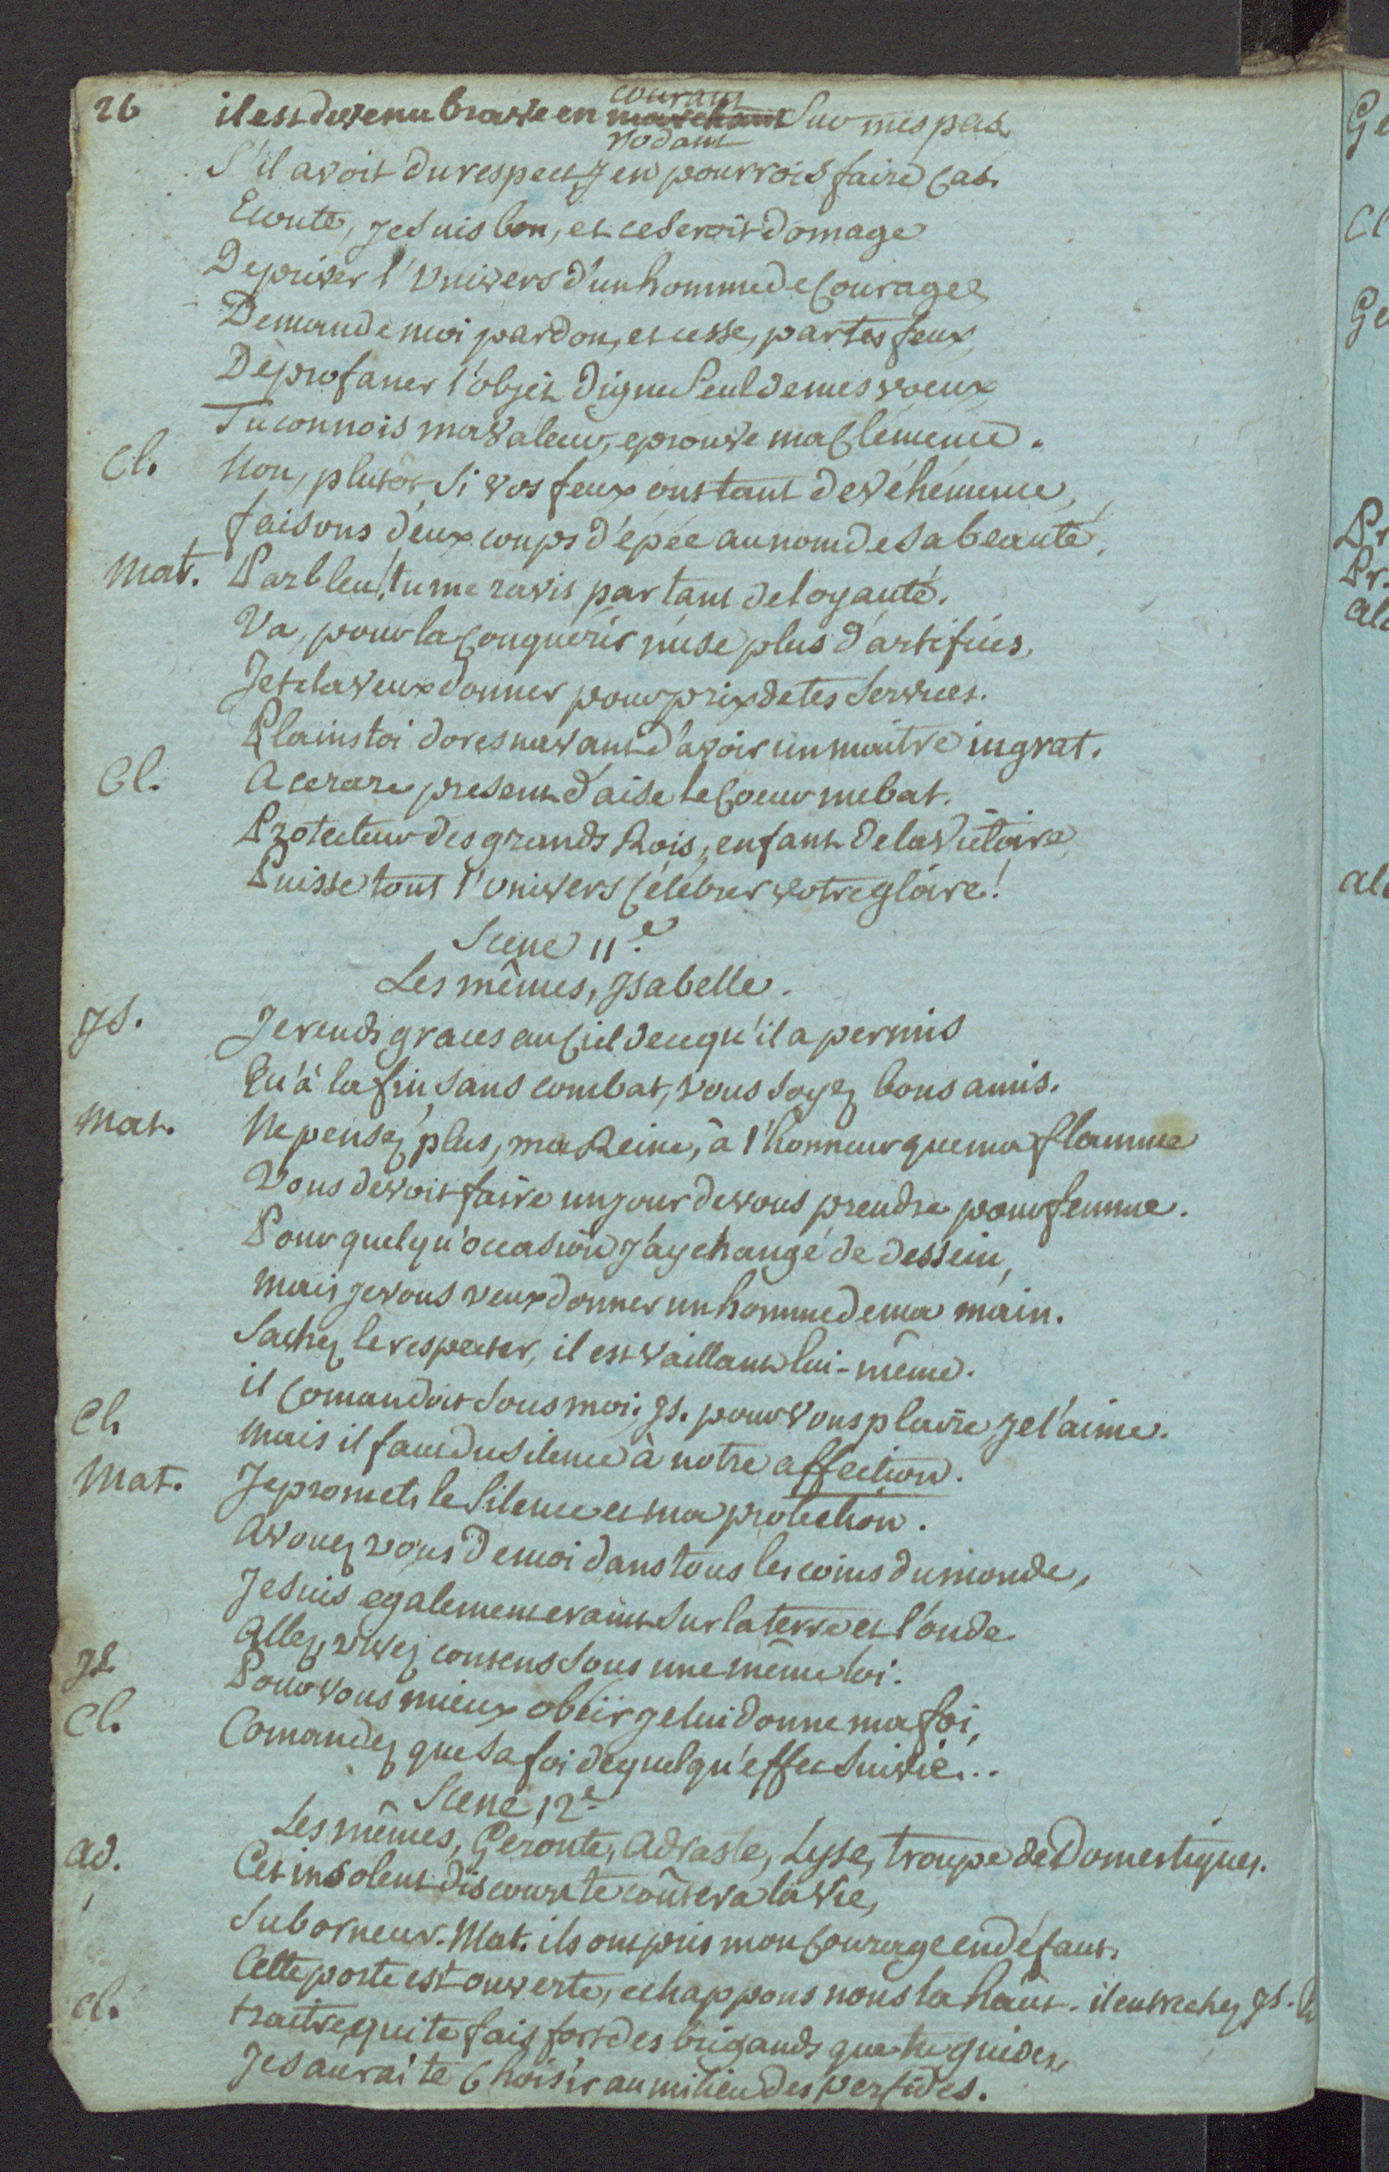 26
il est devenu brave en marchant courant rodant Sur mes pas.
S'il avoit du respect, j'en pourrois faire Cas.
Ecoute, je suis bon, et ce seroit domage
De priver l'Univers d'un homme de Courage,
Demande moi pardon, et cesse, par tes feux,
De profaner l'objet digne Seul de mes voeux
Tu connois ma valeur, eprouve ma Clémence.
Cl. Non, plutôt Si vos feux ont tant de véhémence,
faisons deux coups d'épée au nom de Sa beauté.
Mat. Parbleu! tu me ravis par tant de loyauté.
Va, pour la Conquérir n'use plus d'artifices,
Je te la veux donner pour prix de tes Services.
Plains toi doresnavant d'avoir un maitre ingrat.
Cl. A ce rare present d'aise le Coeur me bat.
Protecteur des grands Rois, enfant de la Victoire,
Puisse tout l'Univers Célébrer votre gloire!
Scene 11e.
Les mêmes, Isabelle.
Js. Je rends graces au Ciel de ce qu'il a permis
Qu'à la fin sans combat, vous soyez bons amis.
Mat. Ne pensez plus, ma Reine, à l'honneur que ma flamme
Vous devoit faire un jour de vous prendre pour femme.
Pour quelqu'occasion j'ay changé de dessein,
Mais je vous veux donner un homme de ma main.
Sachez le respecter, il est vaillant lui-même.
il Comandoit Sous moi. Js. pour vous plaire, je l'aime.
Cl. Mais il faut du silence à notre affection.
Mat. Je promets le Silence et ma protection.
Avouez vous de moi dans tous les coins du monde,
Je suis egalement craint Sur la terre et l'onde
Allez, vivez contens sous une même loi.
Js. Pour vous mieux obéir je lui donne ma foi,
Cl. Comandez que Sa foi de quelqu'effet Suivie...
Scene 12e
Les mêmes, Géronte, Adraste, Lyse, troupe de Domestiques.
Ad. Cet insolent discours te coûtera la vie,
Suborneur. Mat. ils ont pris mon Courage en défaut.
Cette porte est ouverte, echappons nous la haut. il entre chez Js.
Cl. traitre, qui te fais fort des brigands que tu guides,
Je saurai te Choisir au milieu des perfides.